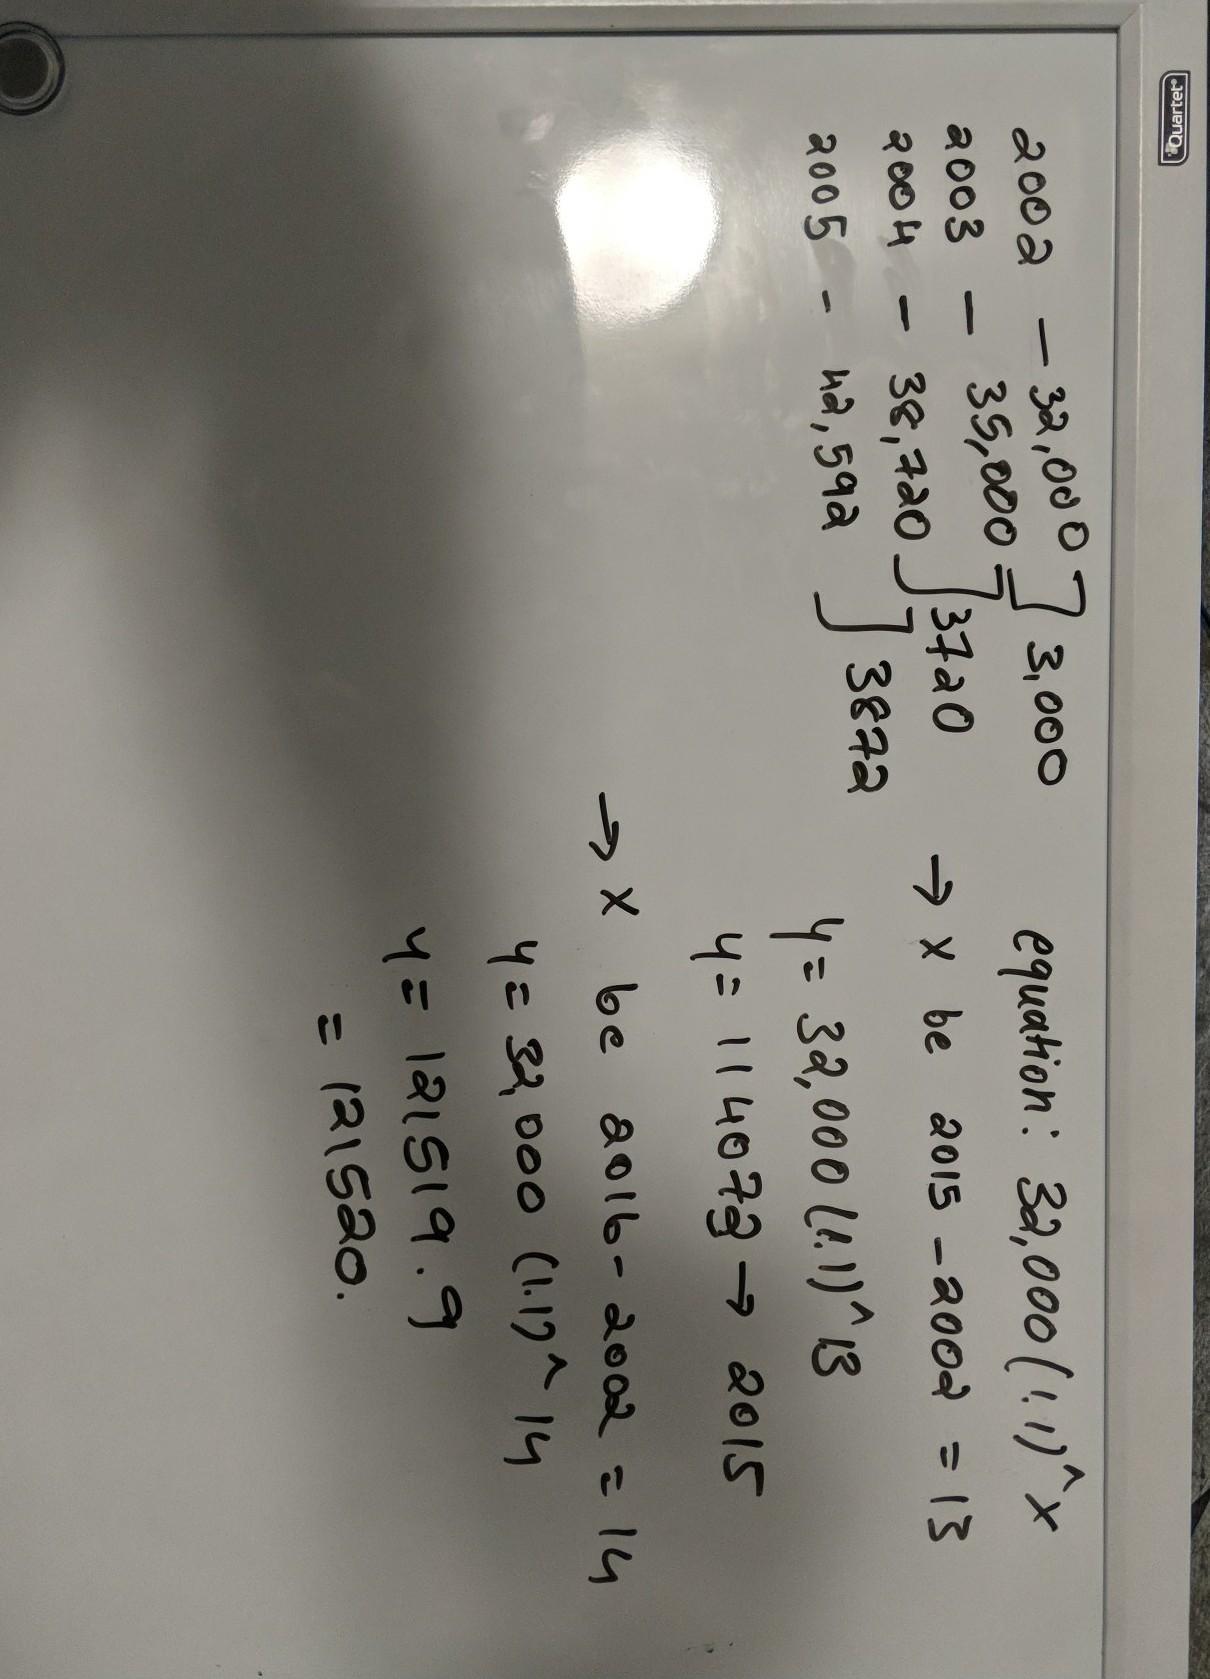 Quartet
2002 - 32,000 ] 3,000
2003 - 35,000
2004 - 38,720 ] 3720
2005 - 42,592 ] 3872
equation: 32,000(1.1)^x
→ x be 2015 - 2002 = 13
y = 32,000(1.1)^13
y = 114073 → 2015
→ x be 2016 - 2002 = 14
y = 32,000 (1.1)^14
y = 121519.9
= 121520.